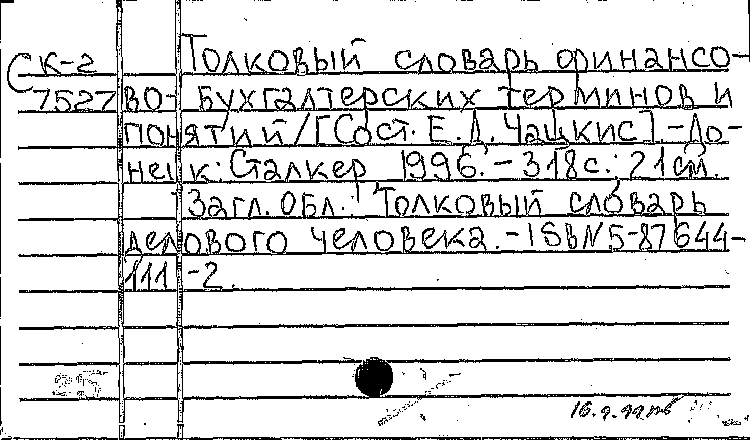 СК-2 Толковый словарь финансо-
7527 во-бухгалтерских терминов и
понятий/[Сост. Е.Д. Чацкис].-До-
нецк: Сталкер, 1996.-318с.; 21см.
Загл. обл.: Толковый словарь
делового человека.-ISBN 5-87644-
111-2.
25